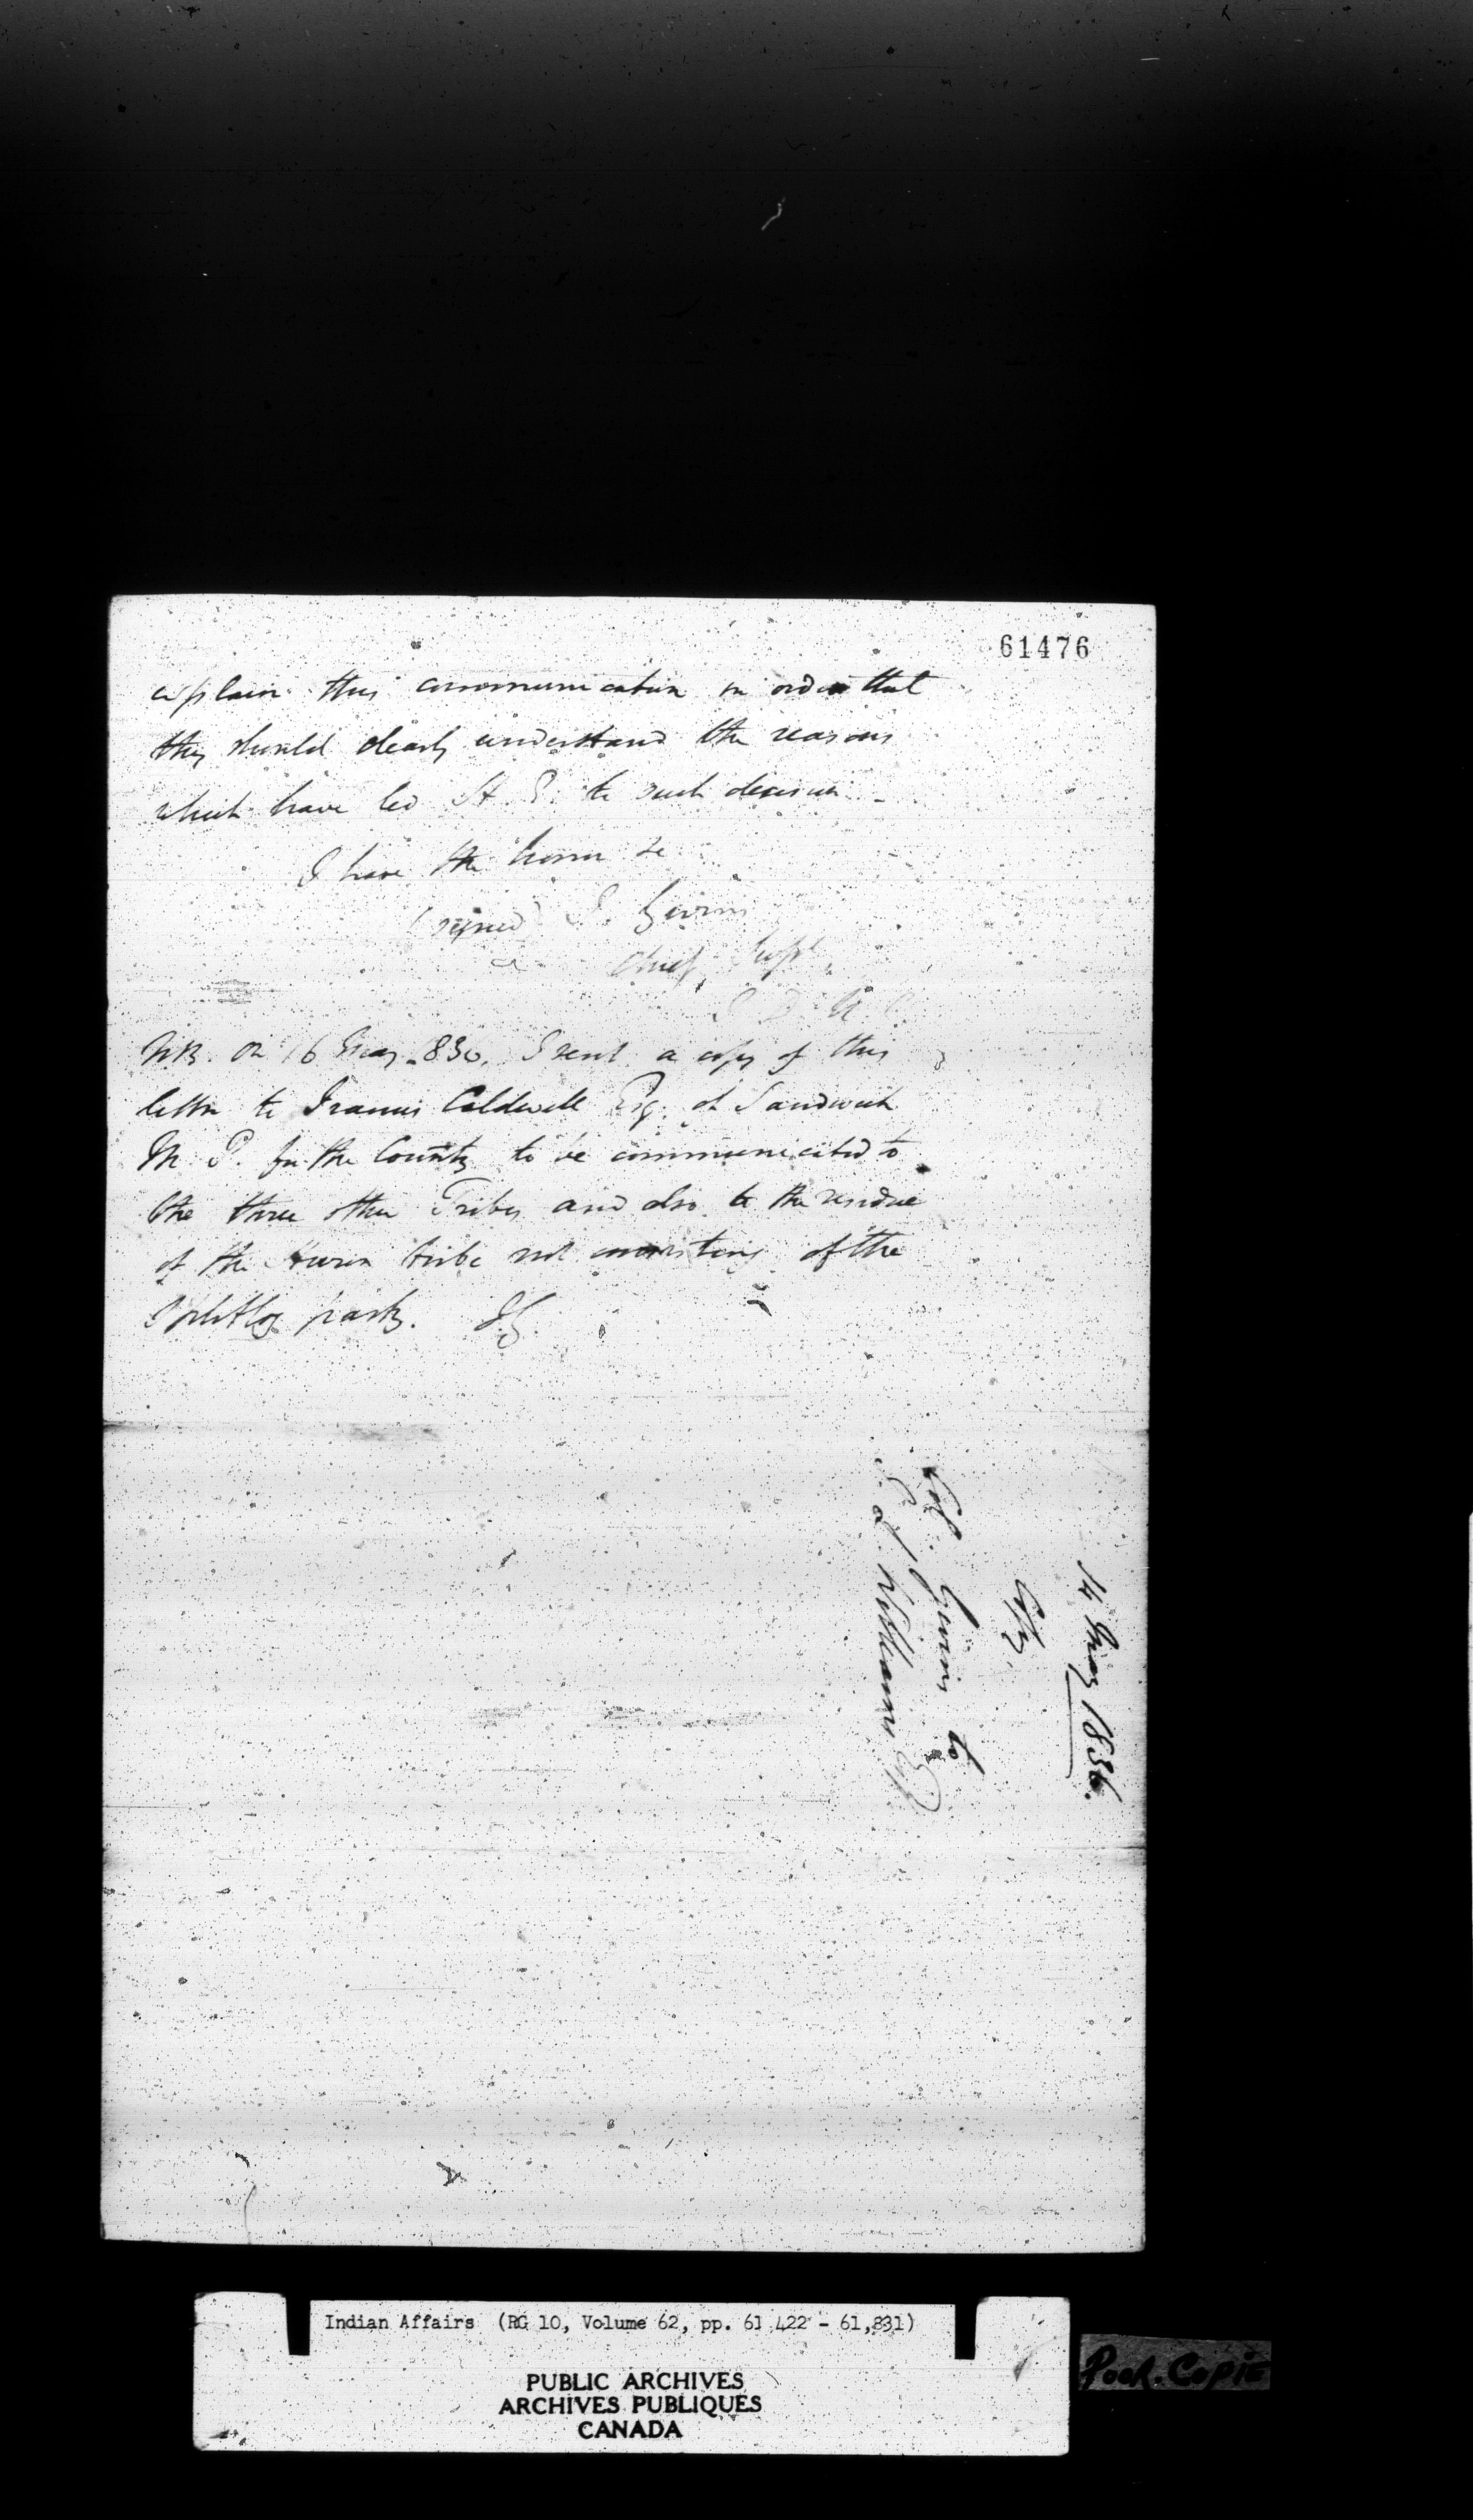 61476
explain this communication in order that
they should clearly understand the reasons
which have led H. E. to such decision _
I have the honor &c
(signed) J. Givins
Chief Supt
I. D. U. C.
N.B. On 16 May 1836. I sent a copy of this
letter to Francis Caldwell Esq. of Sandwich
M. P. for the County to be communicated to
the three other Tribes and also to the residue
of the Huron tribe not consisting of the
Splitlog party. JG
14 May 1836.
Copy
Col. Givins to
Williams Esq
Indian Affairs (RG 10, Volume 62, pp. 61 422 - 61,831)
PUBLIC ARCHIVES
ARCHIVES PUBLIQUES
CANADA
Poor. Copie